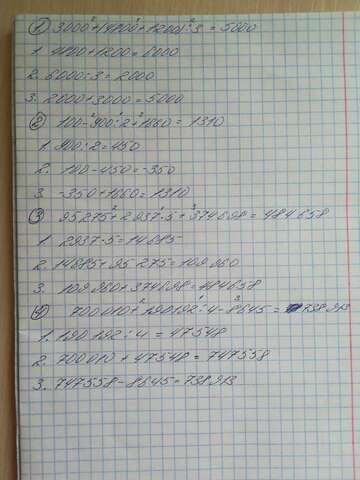 ① 3000+(4800+1200):3 = 5000
1. 4800+1200=6000
2. 6000:3=2000
3. 2000+3000=5000
② 100-900:2+1660=1310
1. 900:2=450
2. 100-450=-350
3. -350+1660=1310
③ 95275+2937·5+374698=484658
1. 2937·5=14685
2. 14685+95275=109960
3. 109960+374698=484658
④ 700010+190192:4-8645=738913
1. 190192:4=47548
2. 700010+47548=747558
3. 747558-8645=738913